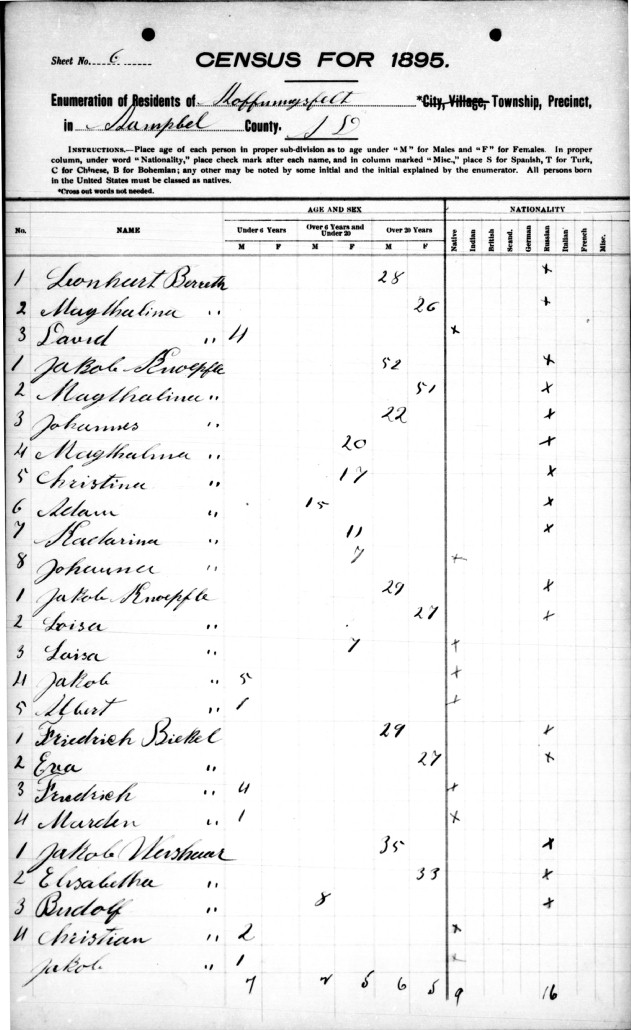 Sheet No. 6
CENSUS FOR 1895.
Enumeration of Residents of Hoffnungsfelt *City, Village, Township, Precinct,
in Kampbel County. S D
INSTRUCTIONS.—Place age of each person in proper sub-division as to age under "M" for Males and "F" for Females. In proper
column, under word "Nationality," place check mark after each name, and in column marked "Misc.," place S for Spanish, T for Turk,
C for Chinese, B for Bohemian; any other may be noted by some initial and the initial explained by the enumerator. All persons born
in the United States must be classed as natives.
*Cross out words not needed.
AGE AND SEX NATIONALITY
No. NAME Under 6 Years Over 6 Years and Under 20 Over 20 Years Native Indian British Scand. German Russian Italian French Misc.
M F M F M F
1 Leonhart Berreth 28 x
2 Magthalina " 26 x
3 David " 4 x
1 Jakob Knoepfle 52 x
2 Magthalina " 51 x
3 Johannes " 22 x
4 Magthalina " 20 x
5 Christina " 17 x
6 Adam " 15 x
7 Kadarina " 11 x
8 Johanna " 7 x
1 Jakob Knoepfle 29 x
2 Loisa " 27 x
3 Luisa " 7 x
4 Jakob " 5 x
5 Albert " 1 x
1 Friedrich Bickel 29 x
2 Eva " 27 x
3 Friedrich " 4 x
4 Marden " 1 x
1 Jakob Weishaar 35 x
2 Elisabetha " 33 x
3 Rudolf " 8 x
4 Christian " 2 x
Jakob " 1 x
7 2 5 6 5 9 16